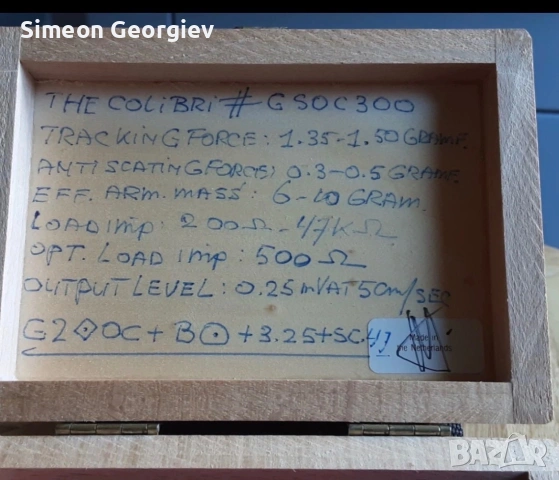 Simeon Georgiev
THE COLIBRI # GSOC300
TRACKING FORCE: 1.35-1.50 GRAM.
ANTISCATINGFORCE: 0.3-0.5 GRAM.
EFF. ARM. MASS: 6-10 GRAM.
LOAD imp: 200Ω-47KΩ
OPT. LOAD imp: 500Ω
OUTPUT LEVEL: 0.25mVAT5cm/SEC
OC + B + 3.25+SC.
Made in
the Netherlands
BAZAR